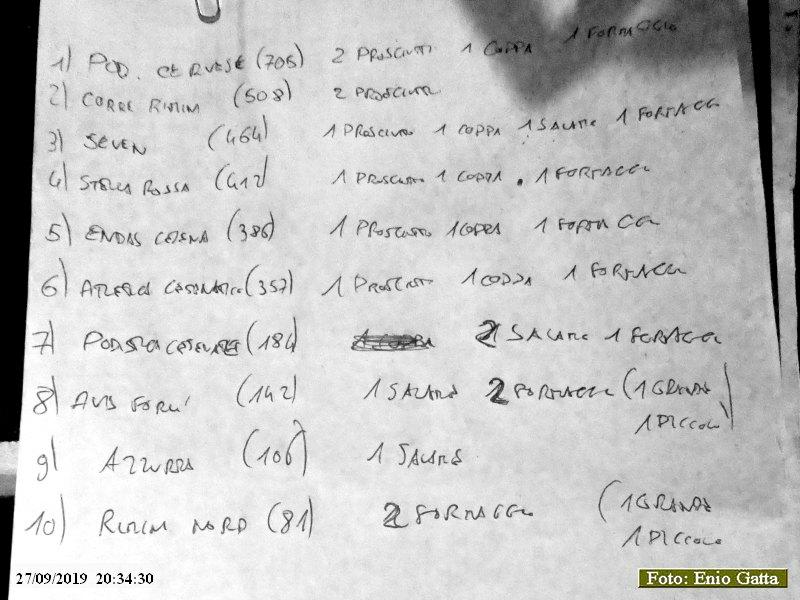 1) POD. CERVESE (705) 2 PROSCIUTTI 1 COPPA 1 FORMAGGIO
2) CORRE RIMINI (508) 2 PROSCIUTTI
3) SEVEN (464) 1 PROSCIUTTO 1 COPPA 1 SALAME 1 FORMAGGIO
4) STELLA ROSSA (412) 1 PROSCIUTTO 1 COPPA 1 FORMAGGIO
5) ENDAS CESENA (386) 1 PROSCIUTTO 1 COPPA 1 FORMAGGIO
6) ATLETICA CESENATICO (357) 1 PROSCIUTTO 1 COPPA 1 FORMAGGIO
7) PODISTICA (184) 2 SALAME 1 FORMAGGIO
8) AVIS FORLI' (142) 1 SALAME 2 FORMAGGI (1 GRANDE
1 PICCOLO)
9) AZZURRA (106) 1 SALAME
10) RIMINI NORD (81) 2 FORMAGGI (1 GRANDE
1 PICCOLO
27/09/2019 20:34:30
Foto: Enio Gatta